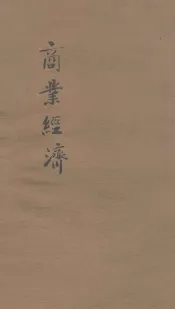 商業經濟